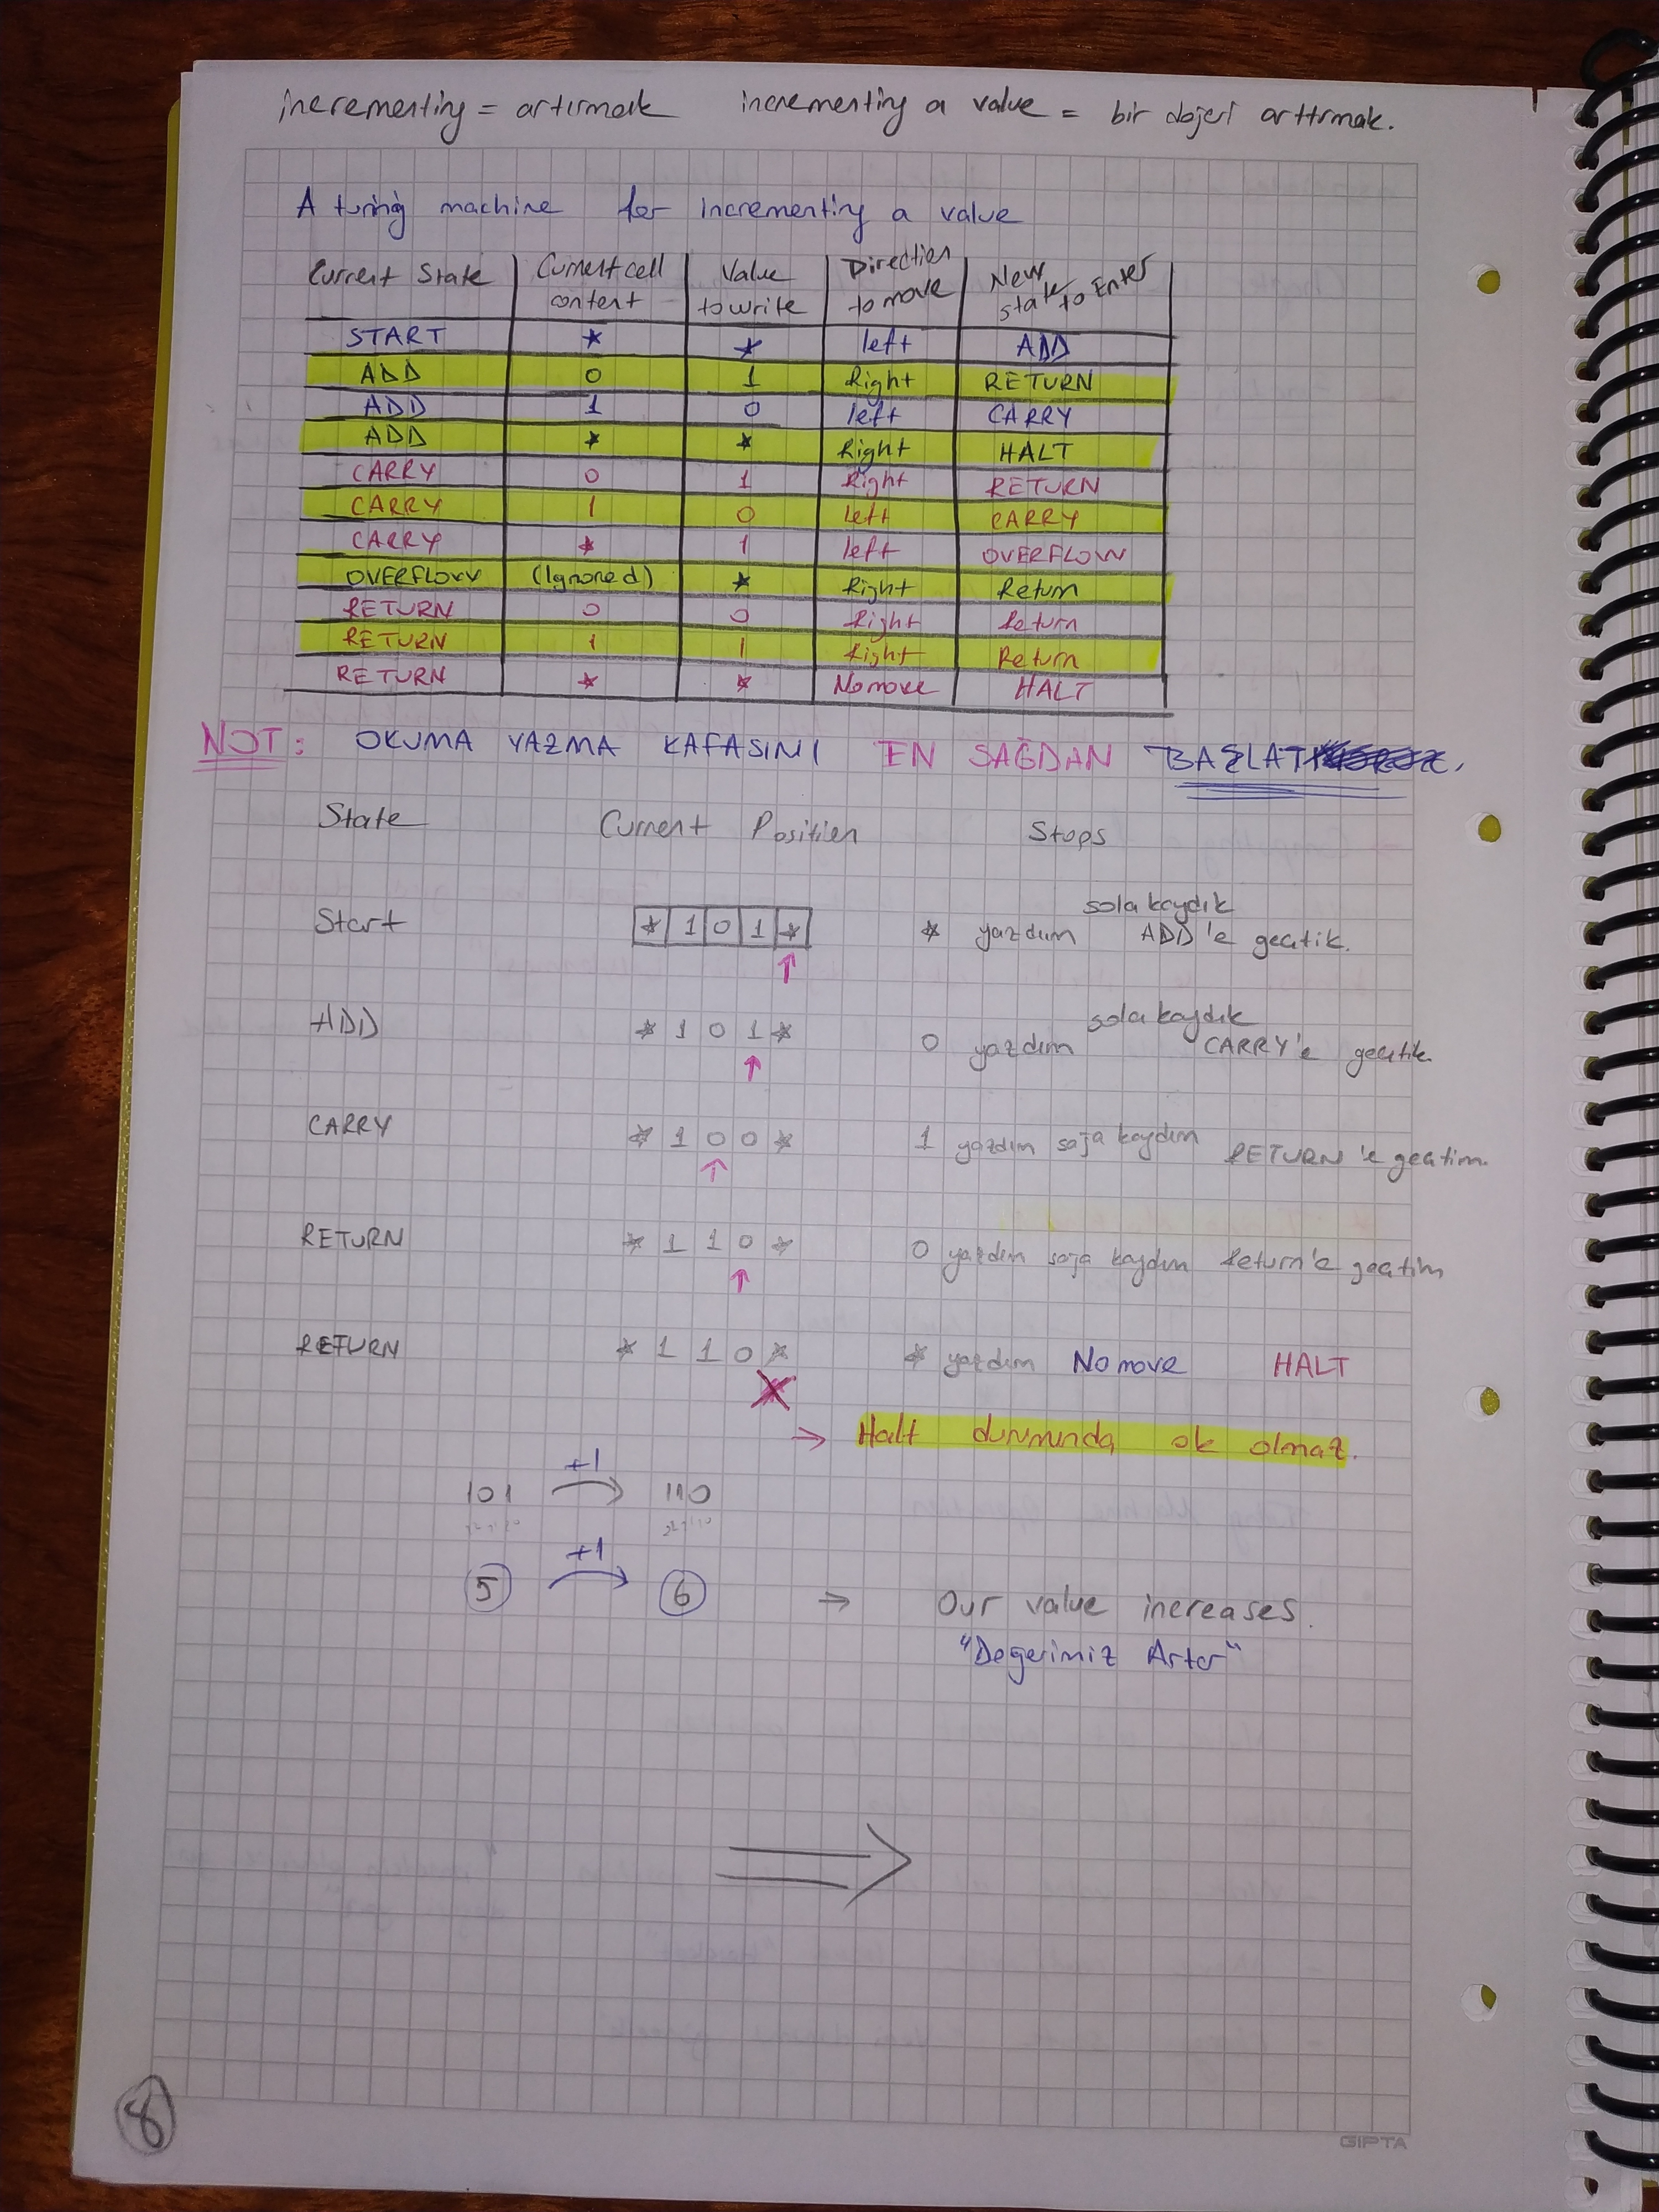 incrementing = artırmak incrementing a value = bir değeri arttırmak.
A turing machine for incrementing a value
Current State | Current cell content | Value to write | Direction to move | New state to Enter
START | * | * | left | ADD
ADD | 0 | 1 | Right | RETURN
ADD | 1 | 0 | left | CARRY
ADD | * | * | Right | HALT
CARRY | 0 | 1 | Right | RETURN
CARRY | 1 | 0 | left | CARRY
CARRY | * | 1 | left | OVERFLOW
OVERFLOW | (Ignored) | * | Right | Return
RETURN | 0 | 0 | Right | Return
RETURN | 1 | 1 | Right | Return
RETURN | * | * | No move | HALT
NOT: OKUMA YAZMA KAFASINI EN SAĞDAN BAŞLAT
State Current Position Steps
Start * 1 0 1 * * yazdım sola kaydık ADD'e geçtik.
ADD * 1 0 1 * 0 yazdım sola kaydık CARRY'e geçtik.
CARRY * 1 0 0 * 1 yazdım sağa kaydım RETURN'e geçtim.
RETURN * 1 1 0 * 0 yazdım sağa kaydım Return'e geçtim
RETURN * 1 1 0 * * yazdım No move HALT
→ Halt durumunda ok olmaz.
101 +1 110
5 +1 6 → Our value increases.
"Değerimiz Artar"
8
GIPTA